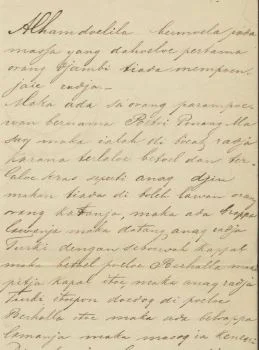 Alhamdoelila bermoela pada
massa yang dahoeloe pertama
orang Djambi tiada mempoen
jaie radja.
Maka ada sa'orang parampoe
wan bernama Petri Penang Ma
saq maka ialah di bocat radja
karana terlaloe betoel dan ter
laloe kras seperti anaq djin
makan tiada di boleh lawan orang
orang katanja, maka ada brappa
lamanja maka datang anaq radja
Turki dengan seboewah kappal
maka bethel poeloe Berhalla maka
pitja kapal itoe maka anaq radja
turki itoepon doedoeq di poeloe
Berhalla itoe maka ada bebrappa
lamanja maka masoq ia kenegri